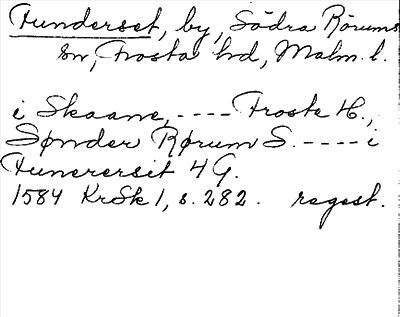 Funderset, by, Södra Rörums
sn, Frosta hd, Malm. l.
i Skaane, ---- Froste H.,
Sønder Rørum S. ----- i
Funerersit 4 G.
1584 KrSk 1, s. 282. regest.